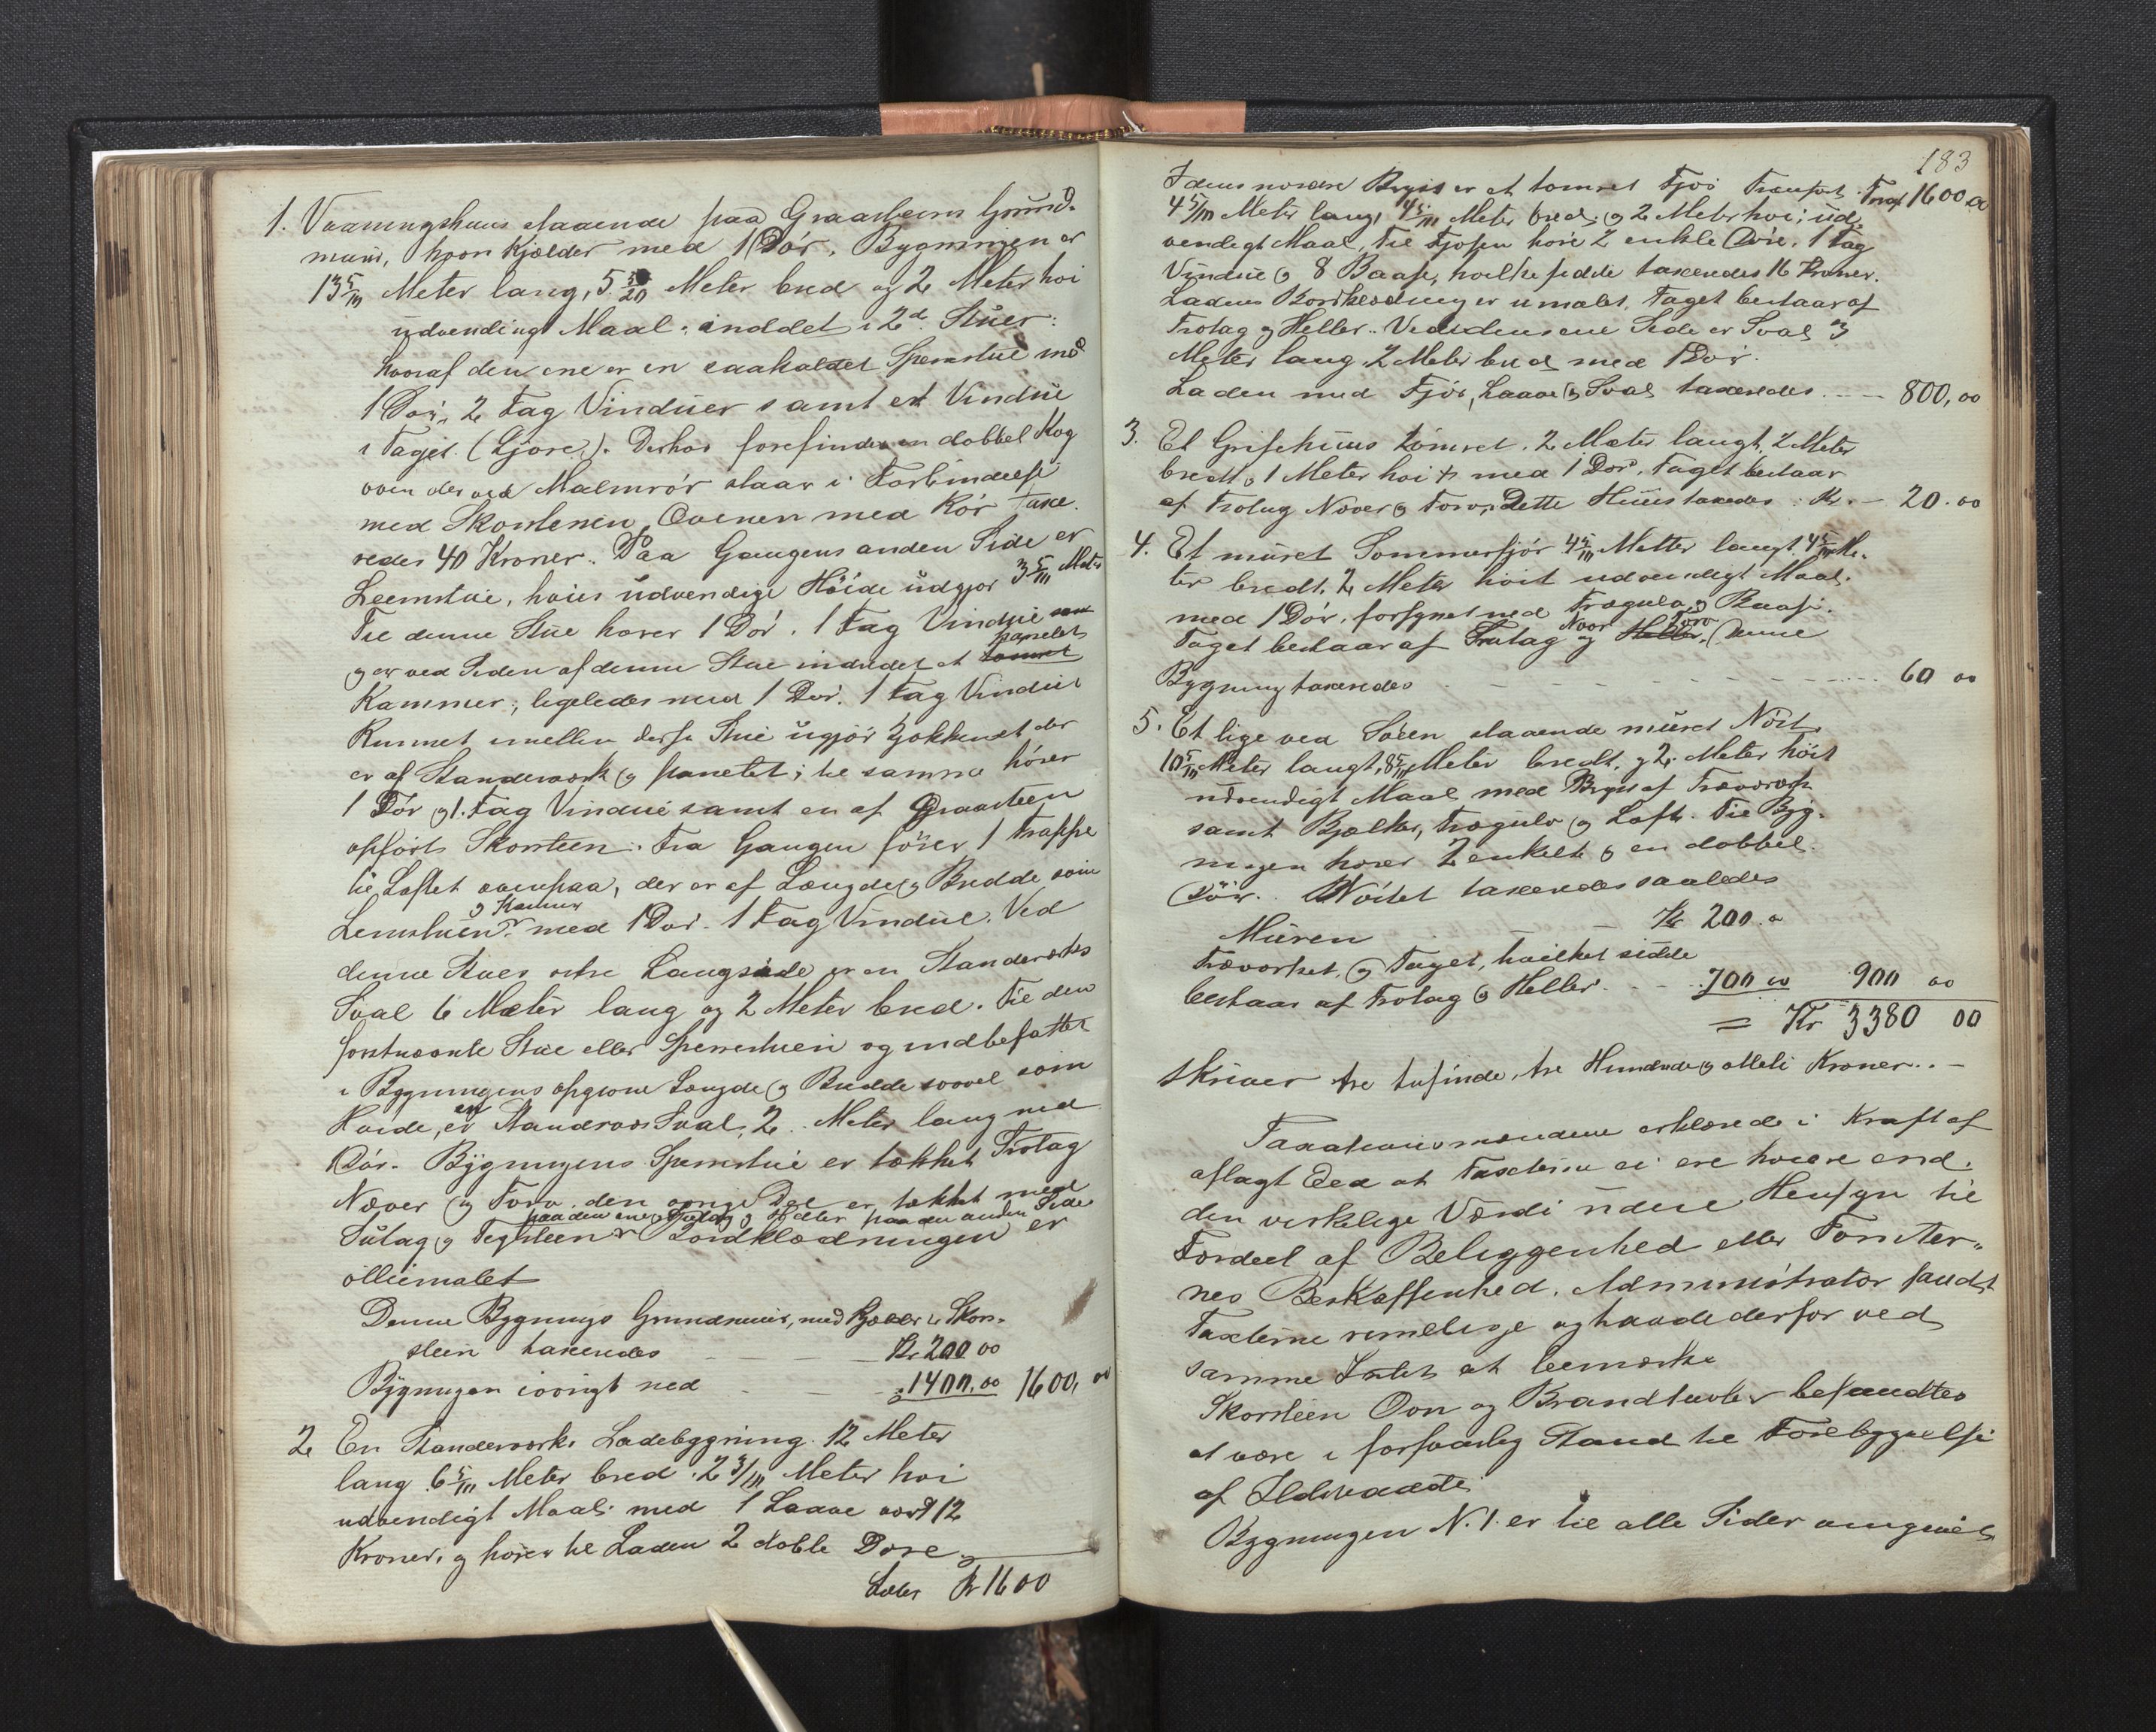 1. Vaaningshuus staaende paa Graasteens Grund-
muur, hvori Kjælder med 1 Dør. Bygningen er
13 5/10 Meter lang, 5 5/20 Meter bred og 2 Meter høi
udvendingt Maal, inddelt i 2de Stuer:
hvoraf den ene er en saakaldet Sperrstue med
1 Dør, 2 Fag Vinduer samt et Vindue
i Taget (Ljore). Derhos forefindes en dobbel Kog
ovn der ved Malmrør staar i Forbindelse
med Skorstenen, Ovenen med Rør taxe-
redes 40 Kroner. Paa Gangens anden Side er
Leemstue, hvis udvendige Høide udgjør 3 5/10 Meter
Til denne Stue hører 1 Dør. 1 Fag Vindue samt
panelet
og er ved Siden af denne Stue indredet et tomret
Kammer, ligeledes med 1 Dør. 1 Fag Vindue
Rummet imellem disse Stue ugjør Kjøkkenet der
er af Standeværk og panelet; til samme hører
1 Dør og 1. Fag Vindue samt en af Graasteen
opført Skorsteen. Fra Gangen fører 1 Trappe
til Loftet ovenpaa, der er af Længde og Bredde som
og Kammer
Lemstuen med 1 Dør. 1 Fag Vindue. Ved
denne Stues østre Langside er en Standeværks
Sval 6 Meter lang og 2 Meter bred. Til den
førstnævnte Stue eller Sperrestuen og indbefattet
i Bygningens opgivne Længde og Bredde saavel som
Høide, er en Standværks Sval, 2 Meter lang med
1 Dør. Bygningens Sperrstue er tækket Trotag
Næver og Torv, den øvrige Del er tækket med
paa den ene og Sutag og Heller paa den anden Side
Sutag og Teglsteen Bordklædningen er
olliemalet
Denne Bygnings Grundmuur, med Kjælder & Skor-
steen taxeredes Kr 200 00
Bygningen iøvrigt ned 1400.00 1600, 00
2 En Standeværks Ladebygning 12 Meter
lang 6 5/10 Meter bred 2 3/10 Meter høi
udvendigt Maal med 1 Laave værd 12
Kroner, og hører til Laden 2 doble Døre
Lates Kr 1600
183
I dens nordre Brysst er et tømret Fjøs Transport Trsp 1600.00
4 5/10 Meter langt 4 5/10 Meter bred og 2 Meter høi; ud-
vendigt Maal, Til Fjøsen høre 2 enkle Døre, 1 Fag
Vindue og 8 Baase, hvilke sidste taxeredes 16 Kroner.
Ladens Bordklædning er umalet. Taget bestaar af
Trotag og Heller. Ved dens ene Side er Sval 3
Meter lang 2 Meter bred med 1 Dør.
Laden med Fjøs, Laave og Sval taxeredes 800,00
3. Et Grisehuus tømret. 2 Meter langt, 2 Meter
bredt og 1 Meter høit med 1 Dør. Taget bestaar
af Trotag Næver og Torv, Dette Huus taxeredes Kr. 20.00
4. Et muret Sommerfjøs 4 5/10 Metter langt 4 5/10 Me-
ter bredt. 2 Meter høit udvendigt Maal.
med 1 Dør, forsynet med Trægulv og Baase.
Næver Torv
Taget bestaar af Trotag og Heller. Denne
Bygning taxeredes 60 00
5. Et lige ved Søen staaende muret Nøst
10 5/10 Meter langt, 8 5/10 Meter bredt. og 2 Meter høit
udvendigt Maal med Bryst af Træværk
samt Bjælker, Trægulv og Loft. Til Byg-
ningen hører 2 enkelt og en dobbel
Dør. Nøstet taxeredes saaledes
Muren Kr 200.00
Træværket, og Taget, hvilket sidste
bestaar af Trotag og Heller 700 00 900 00
= Kr 3380 00
skriver tre tusinde, tre Hundrede og otteti Kroner.
Taxationsmændene erklærede i Kraft af
aflagt Eed at Taxterne ei ere høiere end
den virkelige Værdi uden Hensyn til
Fordeel af Beliggenhed eller Tomter-
nes Beskaffenhed. Administrator fandt
Taxterne rimelige og havde derfor ved
samme Intet at bemærke
Skorsteen Ovn og Brandtavler befandtes
at være i forsvarlig Stand til Forebyggelse
af Ildsvaade
Bygningen N. 1. er til alle Sider omgivet